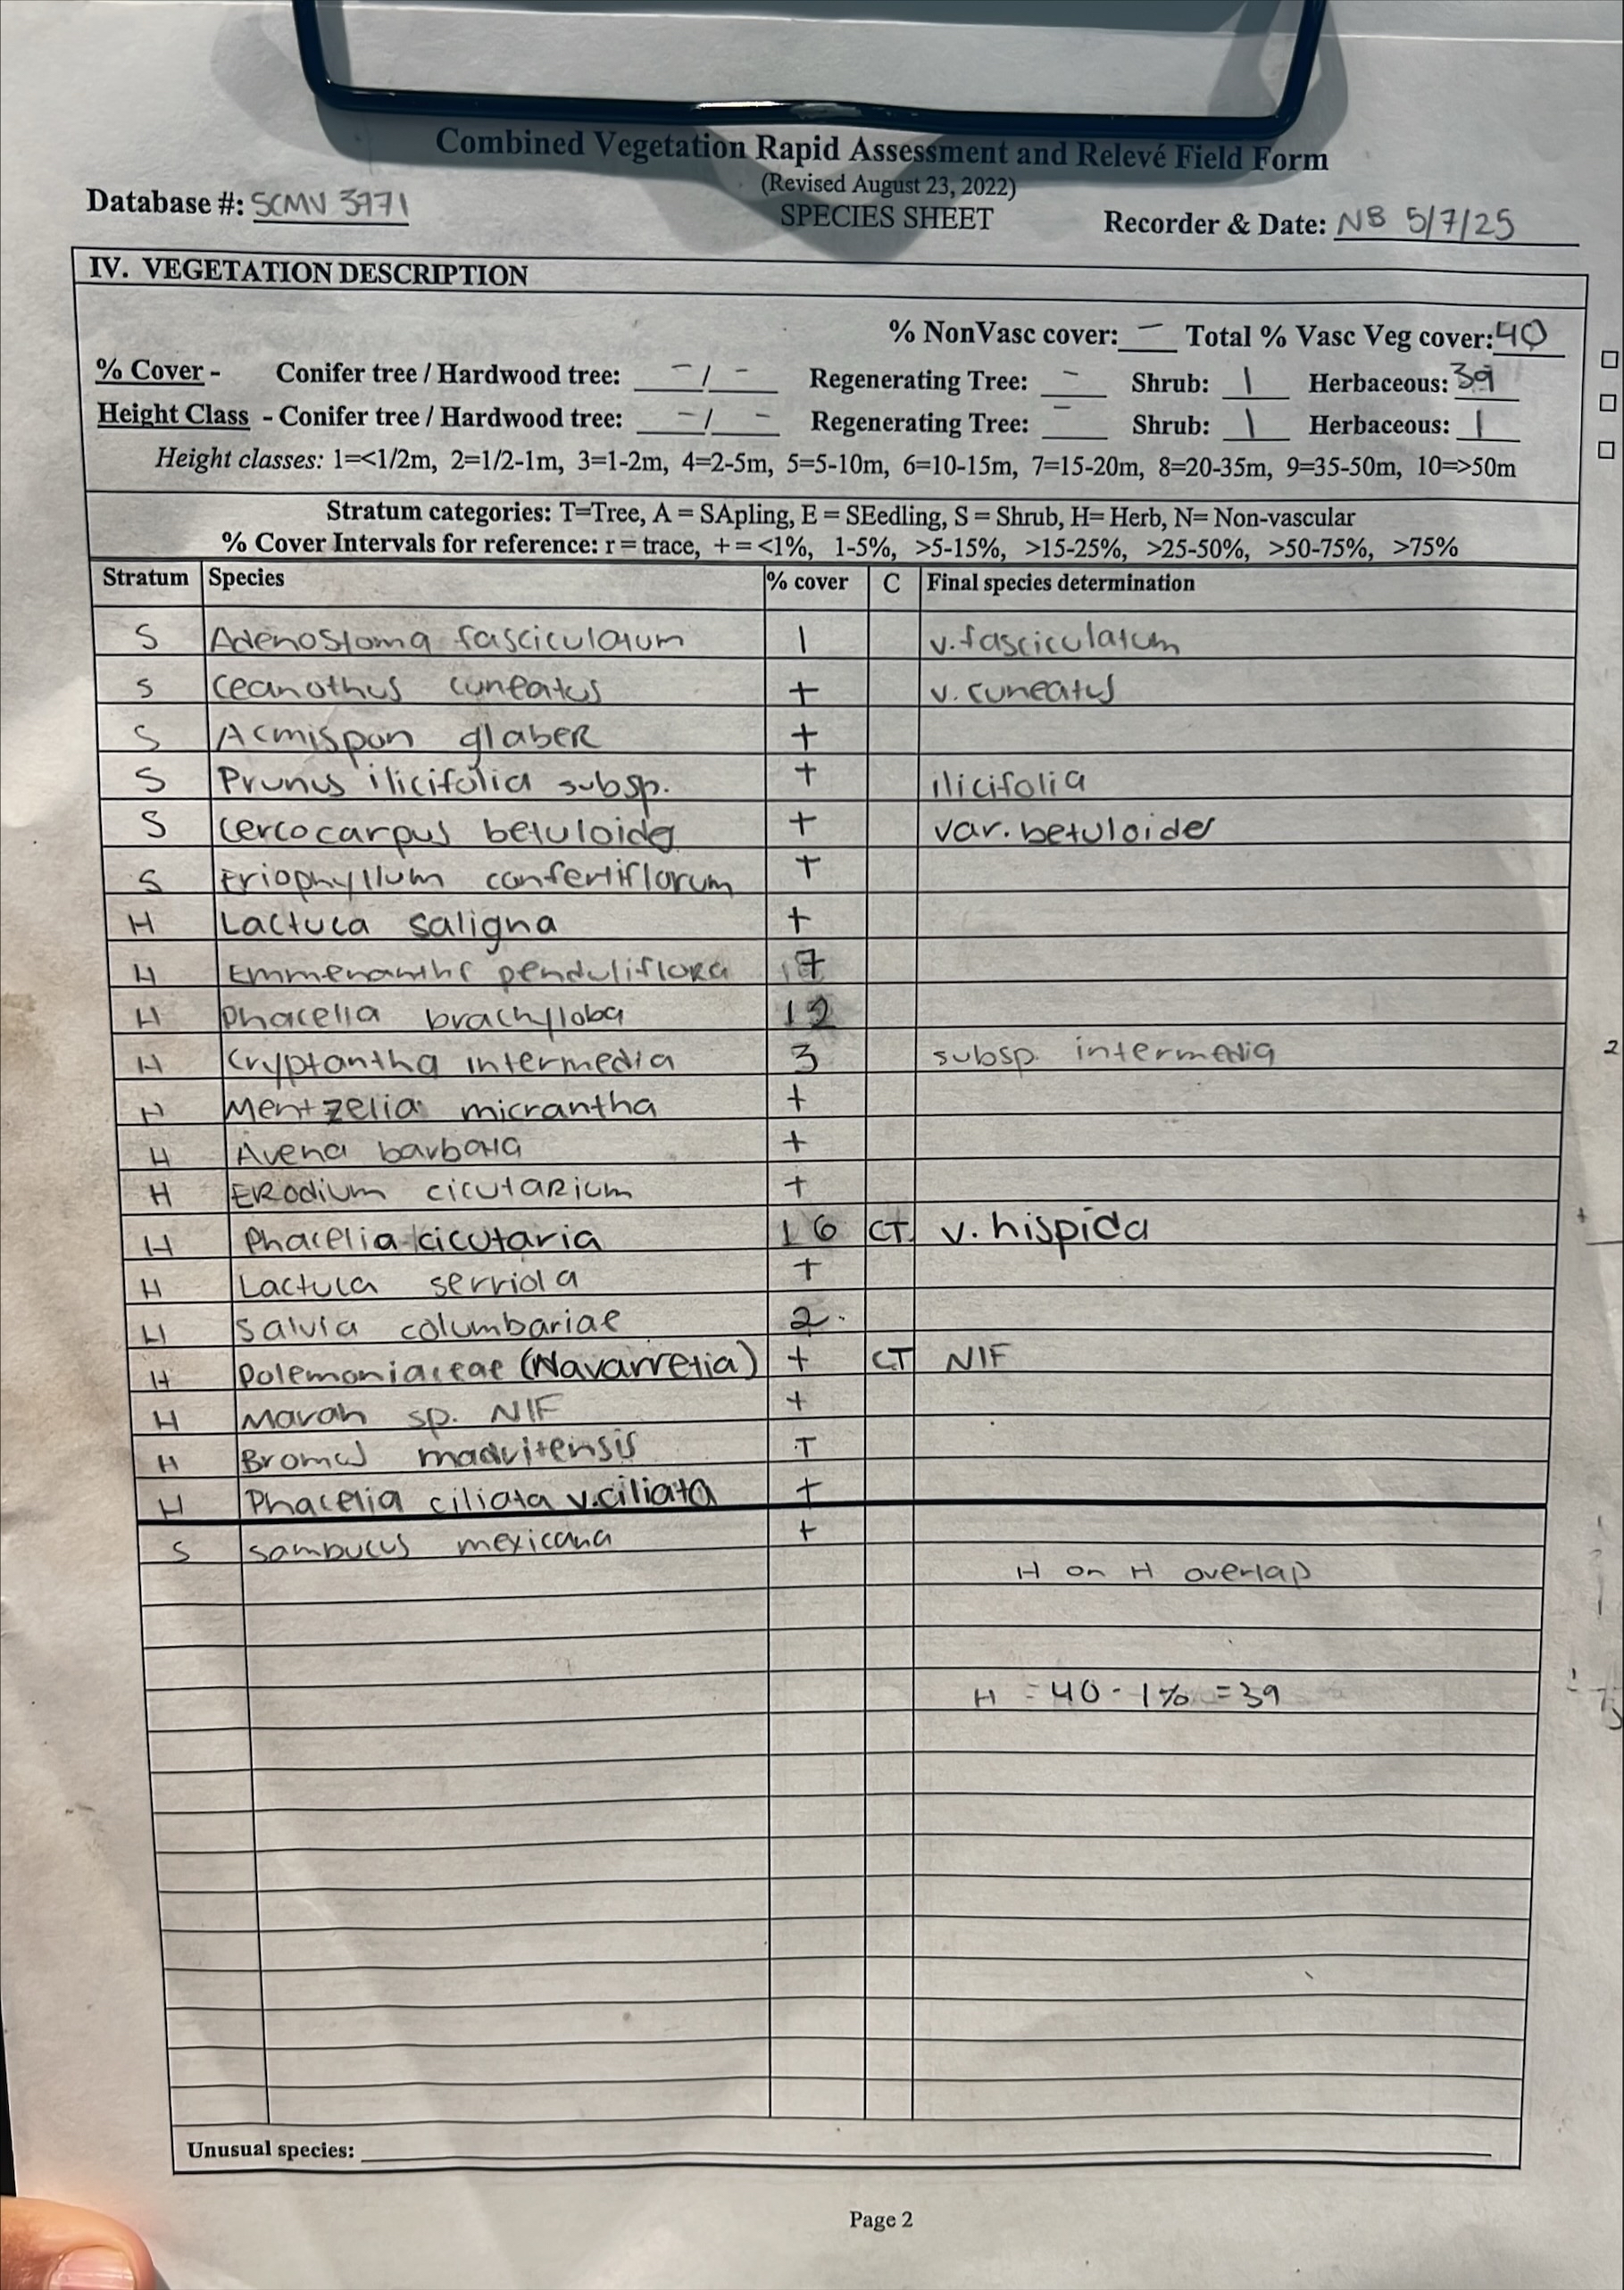 Combined Vegetation Rapid Assessment and Relevé Field Form
(Revised August 23, 2022)
Database #: SCMV 3771 SPECIES SHEET Recorder & Date: NB 5/7/25
IV. VEGETATION DESCRIPTION
% NonVasc cover: — Total % Vasc Veg cover: 40
% Cover - Conifer tree / Hardwood tree: - / - Regenerating Tree: - Shrub: 1 Herbaceous: 39
Height Class - Conifer tree / Hardwood tree: - / - Regenerating Tree: - Shrub: 1 Herbaceous: 1
Height classes: 1=<1/2m, 2=1/2-1m, 3=1-2m, 4=2-5m, 5=5-10m, 6=10-15m, 7=15-20m, 8=20-35m, 9=35-50m, 10=>50m
Stratum categories: T=Tree, A = SApling, E = SEedling, S = Shrub, H= Herb, N= Non-vascular
% Cover Intervals for reference: r = trace, + = <1%, 1-5%, >5-15%, >15-25%, >25-50%, >50-75%, >75%
Stratum Species % cover C Final species determination
S Adenostoma fasciculatum 1 v. fasciculatum
S Ceanothus cuneatus + v. cuneatus
S Acmispon glaber +
S Prunus ilicifolia subsp. + ilicifolia
S Cercocarpus betuloides + var. betuloides
S Eriophyllum confertiflorum +
H Lactuca saligna +
H Emmenanthe penduliflora 7
H Phacelia brachyloba 12
H Cryptantha intermedia 3 subsp. intermedia
H Mentzelia micrantha +
H Avena barbata +
H Erodium cicutarium +
H Phacelia cicutaria 16 CT v. hispida
H Lactuca serriola +
H Salvia columbariae 2
H Polemoniaceae (Navarretia) + CT NIF
H Marah sp. NIF +
H Bromus madritensis +
H Phacelia ciliata v. ciliata +
S Sambucus mexicana +
H on H overlap
H = 40 - 1% = 39
Unusual species:
Page 2